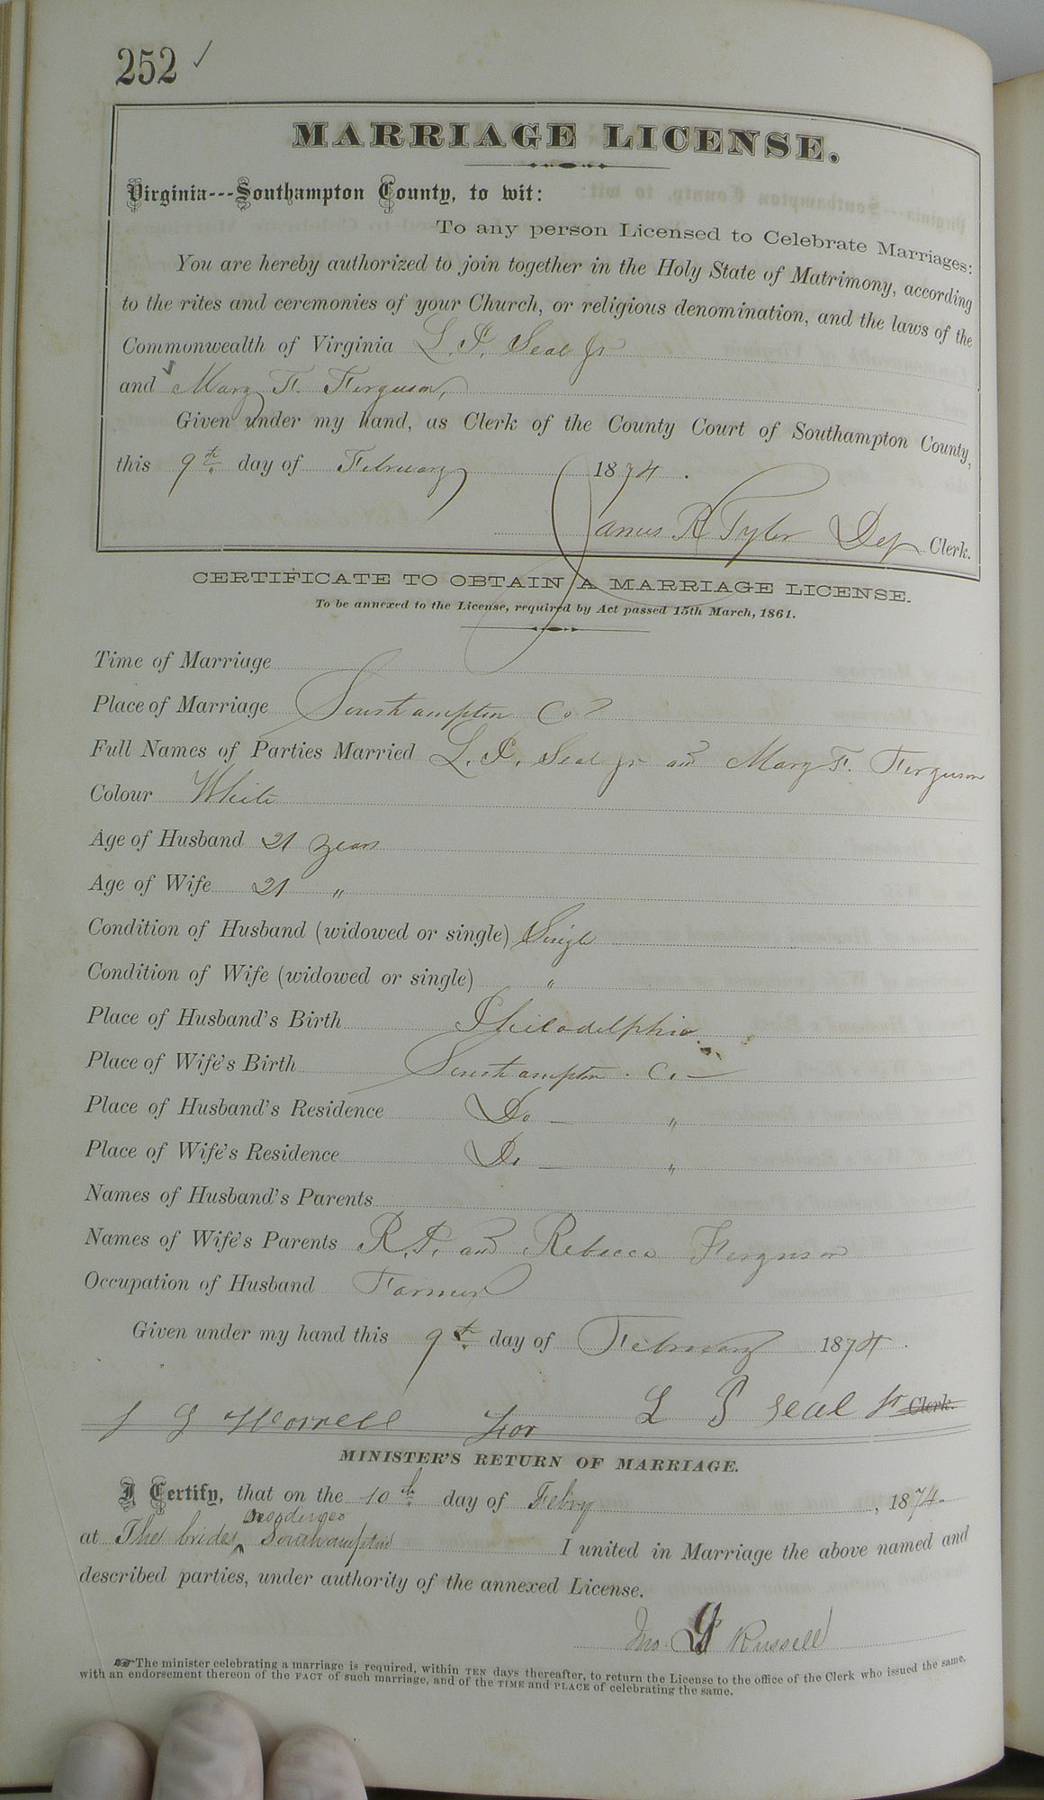 252 ✓
MARRIAGE LICENSE.
Virginia---Southampton County, to wit:
To any person Licensed to Celebrate Marriages:
You are hereby authorized to join together in the Holy State of Matrimony, according
to the rites and ceremonies of your Church, or religious denomination, and the laws of the
Commonwealth of Virginia L. P. Seal Jr
and Mary F. Ferguson,
Given under my hand, as Clerk of the County Court of Southampton County,
this 9th day of February 1874.
James R Tyler Dep Clerk.
CERTIFICATE TO OBTAIN A MARRIAGE LICENSE.
To be annexed to the License, required by Act passed 15th March, 1861.
Time of Marriage
Place of Marriage Southampton Co
Full Names of Parties Married L. P. Seal Jr and Mary F. Ferguson
Colour White
Age of Husband 21 years
Age of Wife 21 "
Condition of Husband (widowed or single) Single
Condition of Wife (widowed or single) "
Place of Husband's Birth Philadelphia
Place of Wife's Birth Southampton Co —
Place of Husband's Residence Do — "
Place of Wife's Residence Do — "
Names of Husband's Parents
Names of Wife's Parents R. P. and Rebecca Ferguson
Occupation of Husband Farmer
Given under my hand this 9th day of February 1874.
J G Worrell for L P Seal Jr Clerk.
MINISTER'S RETURN OF MARRIAGE.
I Certify, that on the 10th day of Febry, 1874.
at The brides Southampton I united in Marriage the above named and
described parties, under authority of the annexed License.
Jno. Russell
The minister celebrating a marriage is required, within TEN days thereafter, to return the License to the office of the Clerk who issued the same,
with an endorsement thereon of the FACT of such marriage, and of the TIME and PLACE of celebrating the same.